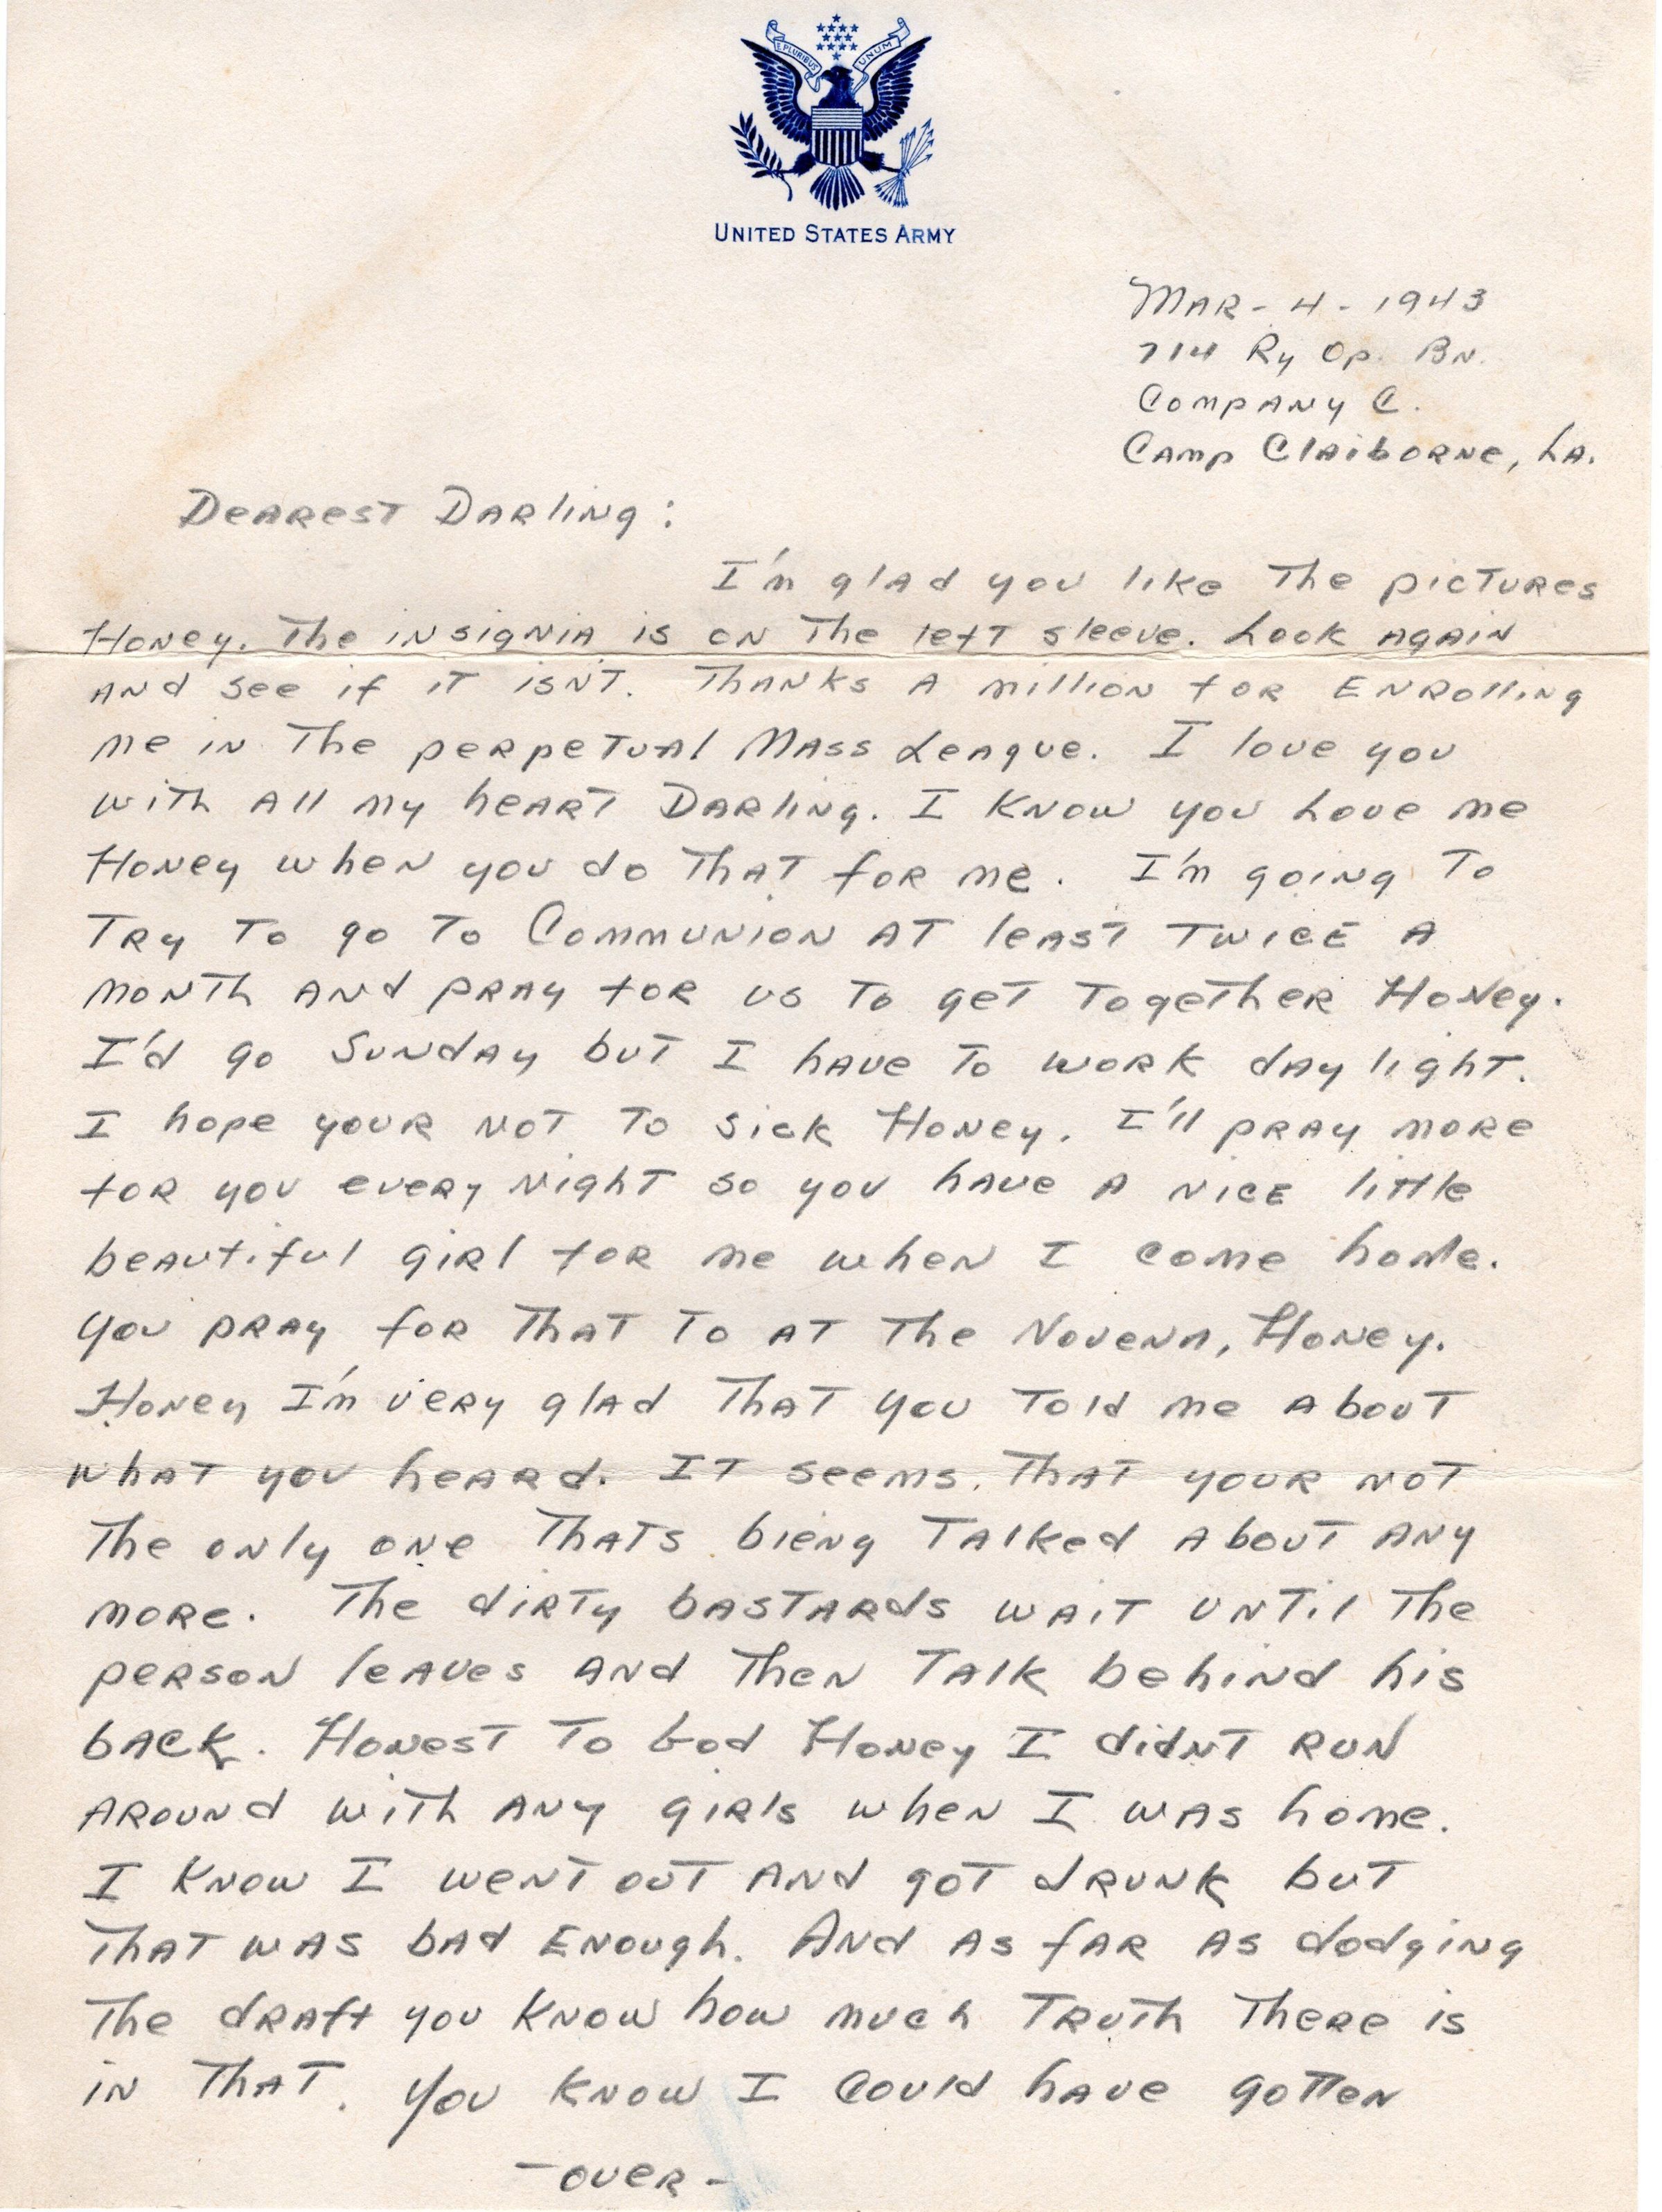 E PLURIBUS UNUM
UNITED STATES ARMY
MAR - 4 - 1943
714 Ry Op. BN.
COMPANY C.
CAMP CLAIBORNE, LA.
DEAREST DARLING:
I'm glad you like The pictures
Honey. The insignia is on The left sleeve. Look again
and see if it isn't. Thanks a million for enrolling
me in The perpetual Mass League. I love you
with all my heart Darling. I know you love me
Honey when you do that for me. I'm going to
try to go to Communion at least twice a
month and pray for us to get together Honey.
I'd go Sunday but I have to work day light.
I hope your not to sick Honey. I'll pray more
for you every night so you have a nice little
beautiful girl for me when I come home.
You pray for that to at the Novena, Honey.
Honey I'm very glad that you told me about
what you heard. It seems that your not
the only one thats bieng talked about any
more. The dirty bastards wait until the
person leaves and then talk behind his
back. Honest to God Honey I didnt run
around with any girls when I was home.
I know I went out and got drunk but
that was bad enough. And as far as dodging
the draft you know how much truth there is
in that. You know I could have gotten
- over -